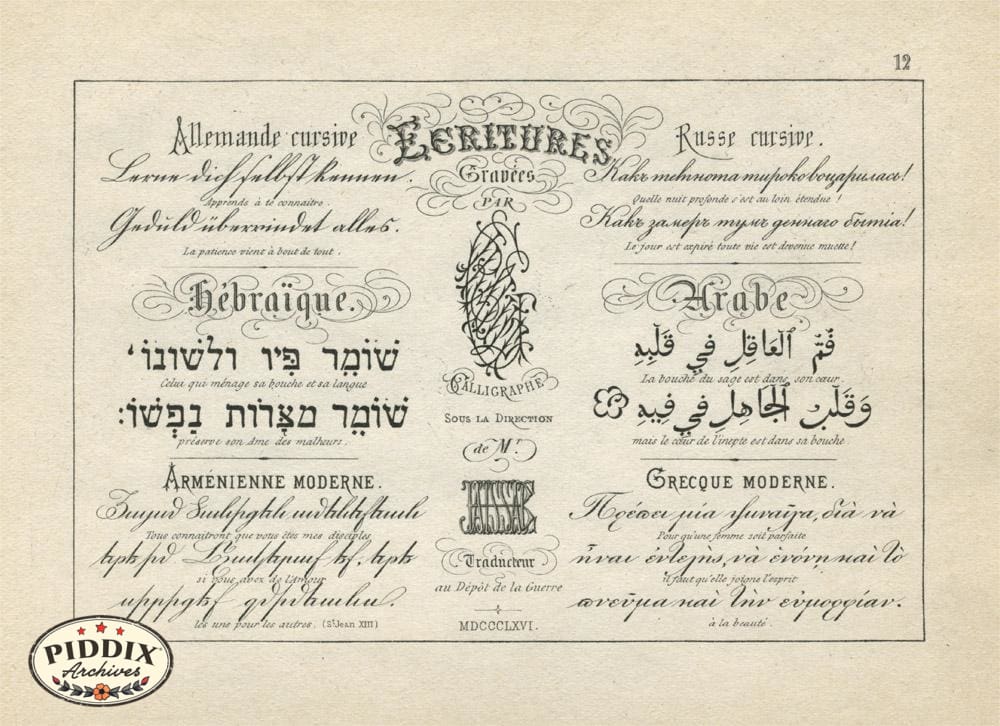 12
Allemande cursive
Lerne dich selbst kennen.
Apprends à te connaitre.
Geduld überwindet alles.
La patience vient à bout de tout.
Hébraïque.
שׁוֹמֵר פִּיו וּלְשׁוֹנוֹ
Celui qui ménage sa bouche et sa langue
שׁוֹמֵר מִצָּרוֹת נַפְשׁוֹ:
préserve son âme des malheurs.
ARMÉNIENNE MODERNE.
Tous connaitront que vous êtes mes disciples
si vous avez de l'Amour
les une pour les autres. (St Jean XIII)
ECRITURES
Gravées
PAR
CALLIGRAPHE
SOUS LA DIRECTION
de Mr.
Traducteur
au Dépôt de la Guerre
MDCCCLXVI.
Russe cursive.
Какъ темнота широко воцарилась!
Quelle nuit profonde s'est au loin étendue !
Какъ замеръ шумъ деннаго бытія!
Le jour est expiré toute vie est devenue muette !
Arabe
فَمُ ٱلعَاقِلِ فِي قَلْبِهِ
La bouche du sage est dans son cœur.
وَقَلْبُ ٱلْجَاهِلِ فِي فِيهِ
mais le cœur de l'inepte est dans sa bouche.
GRECQUE MODERNE.
Πρέπει μία γυναῖκα, διὰ νὰ
Pour qu'une femme soit parfaite
ἦναι ἐντελὴς, νὰ ἑνόνῃ καὶ τὸ
il faut qu'elle joigne l'esprit
πνεῦμα καὶ τὴν εὐμορφίαν.
à la beauté.
PIDDIX
Archives